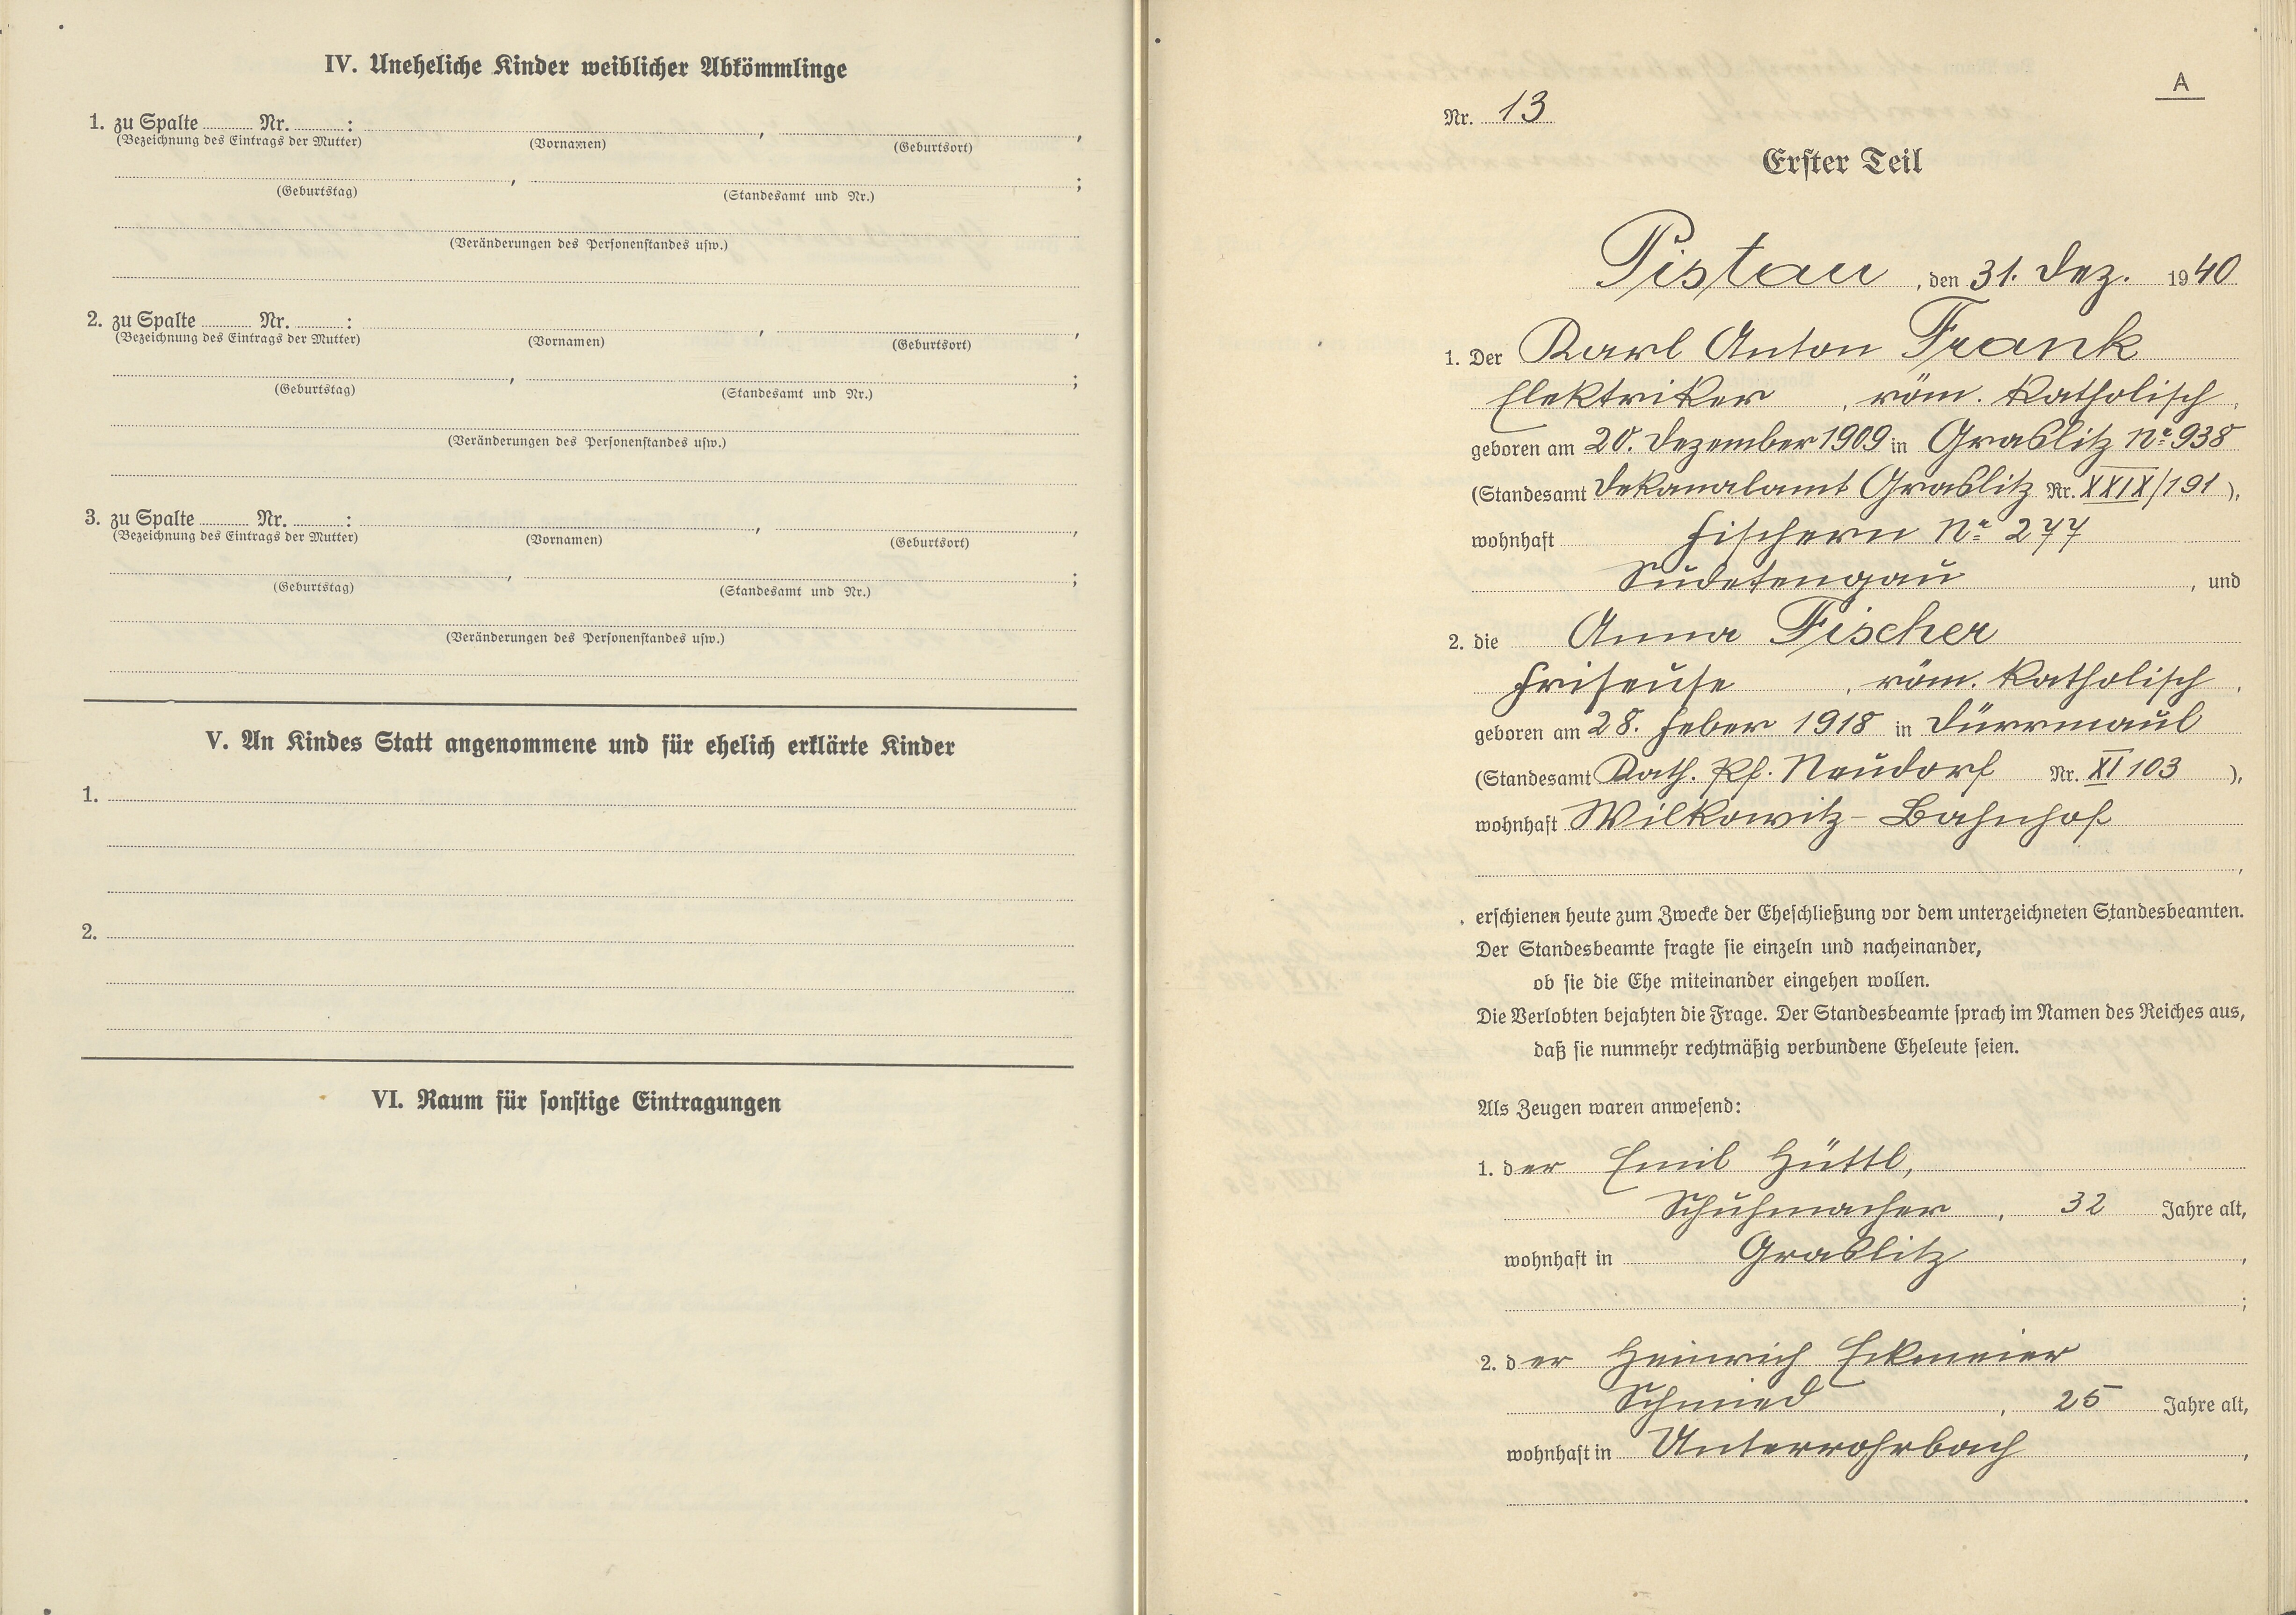 IV. Uneheliche Kinder weiblicher Abkömmlinge
1. zu Spalte ........ Nr. ........ : , ,
(Bezeichnung des Eintrags der Mutter) (Vornamen) (Geburtsort)
, ;
(Geburtstag) (Standesamt und Nr.)
(Veränderungen des Personenstandes usw.)
2. zu Spalte ........ Nr. ........ : , ,
(Bezeichnung des Eintrags der Mutter) (Vornamen) (Geburtsort)
, ;
(Geburtstag) (Standesamt und Nr.)
(Veränderungen des Personenstandes usw.)
3. zu Spalte ........ Nr. ........ : , ,
(Bezeichnung des Eintrags der Mutter) (Vornamen) (Geburtsort)
, ;
(Geburtstag) (Standesamt und Nr.)
(Veränderungen des Personenstandes usw.)
V. An Kindes Statt angenommene und für ehelich erklärte Kinder
1.
2.
VI. Raum für sonstige Eintragungen
A
Nr. 13
Erster Teil
Pistau, den 31. Dez. 1940
1. Der Karl Anton Frank
Elektriker, röm. katholisch,
geboren am 20. Dezember 1909 in Graslitz No 938
(Standesamt Dekanalamt Graslitz Nr. XXIX/191),
wohnhaft Fischern Nr. 277
Sudetengau, und
2. die Anna Fischer
Friseuse, röm. katholisch,
geboren am 28. Feber 1918 in Dürrmaul
(Standesamt Kath. Pf. Neudorf Nr. XI 103),
wohnhaft Wilkowitz-Bahnhof
,
erschienen heute zum Zwecke der Eheschließung vor dem unterzeichneten Standesbeamten.
Der Standesbeamte fragte sie einzeln und nacheinander,
ob sie die Ehe miteinander eingehen wollen.
Die Verlobten bejahten die Frage. Der Standesbeamte sprach im Namen des Reiches aus,
daß sie nunmehr rechtmäßig verbundene Eheleute seien.
Als Zeugen waren anwesend:
1. der Emil Hüttl,
Schuhmacher, 32 Jahre alt,
wohnhaft in Graslitz,
;
2. der Heinrich Eckmeier
Schmied, 25 Jahre alt,
wohnhaft in Unterrohrbach,
.